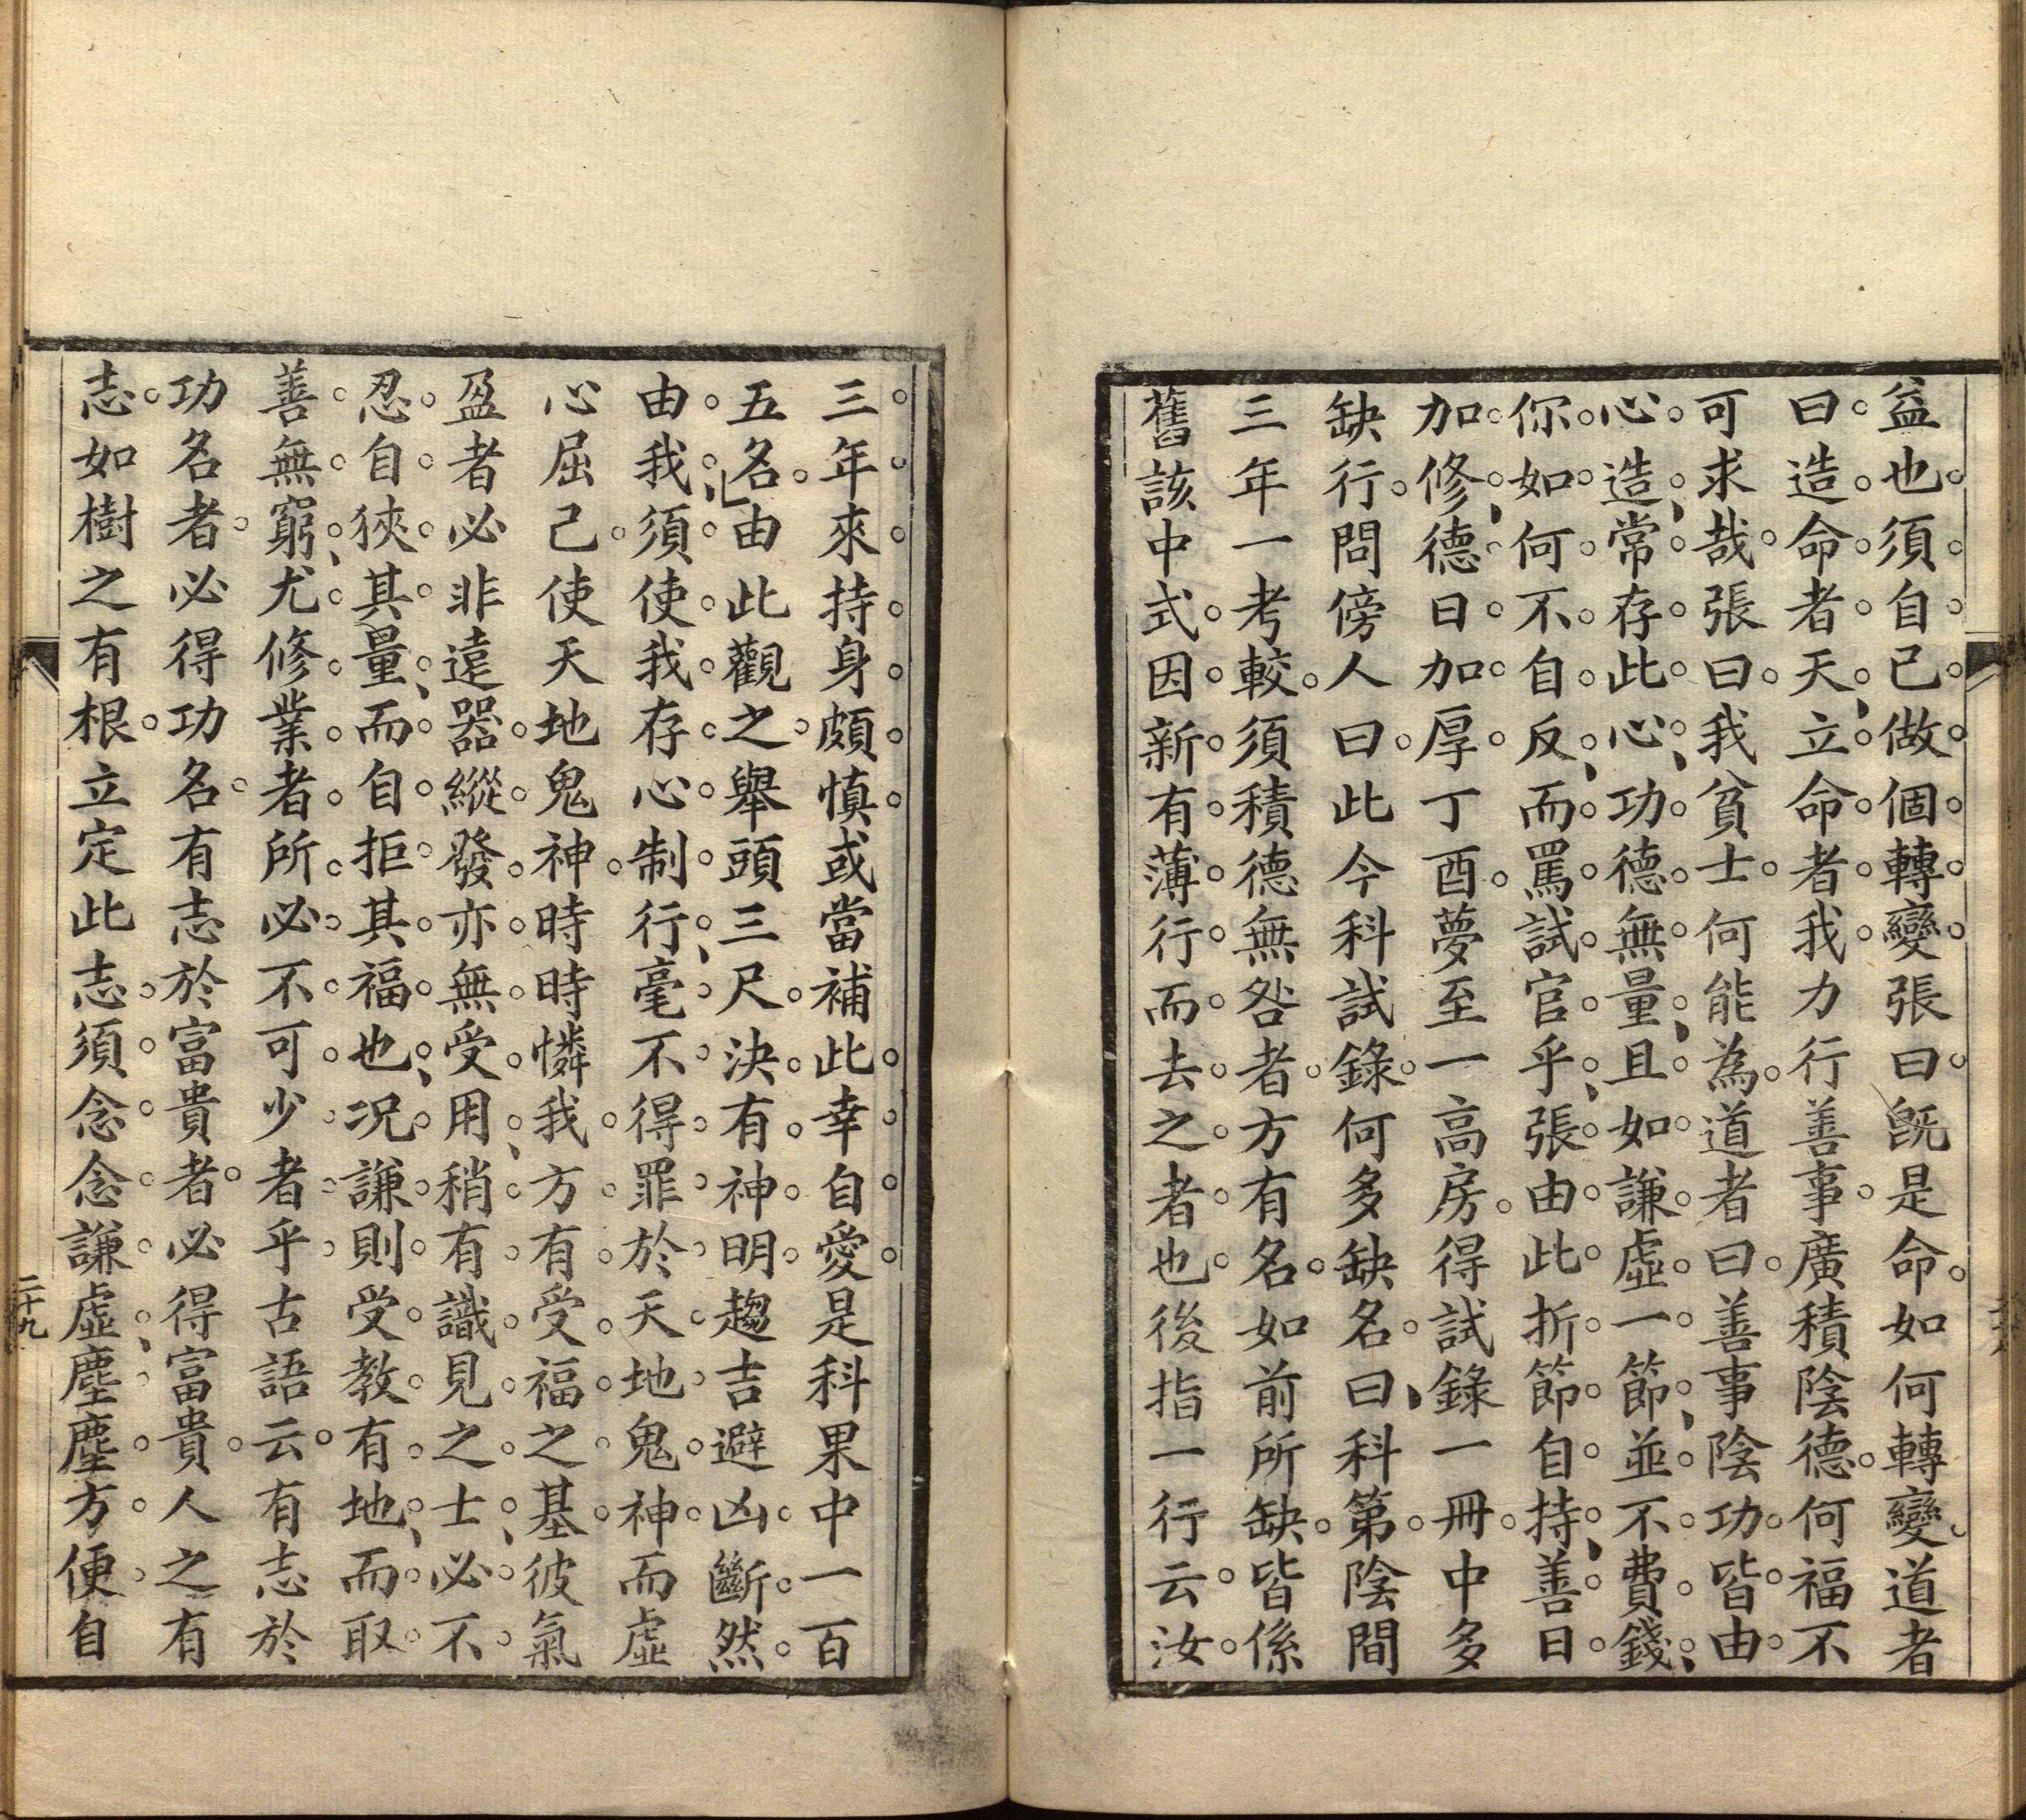 益也須自己做個轉變張曰既是命如何轉變道者
曰造命者天立命者我力行善事廣積陰德何福不
可求哉張曰我貧士何能為道者曰善事陰功皆由
心造常存此心功德無量且如謙虛一節並不費錢
你如何不自反而罵試官乎張由此折節自持善日
加修德日加厚丁酉夢至一高房得試錄一冊中多
缺行問傍人曰此今科試錄何多缺名曰科第陰間
三年一考較須積德無咎者方有名如前所缺皆係
舊該中式因新有薄行而去之者也後指一行云汝
三年來持身頗慎或當補此幸自愛是科果中一百
五名由此觀之舉頭三尺決有神明趨吉避凶斷然
由我須使我存心制行毫不得罪於天地鬼神而虛
心屈己使天地鬼神時時憐我方有受福之基彼氣
盈者必非遠器縱發亦無受用稍有識見之士必不
忍自狹其量而自拒其福也況謙則受教有地而取
善無窮尤修業者所必不可少者乎古語云有志於
功名者必得功名有志於富貴者必得富貴人之有
志如樹之有根立定此志須念念謙虛塵塵方便自
二十九